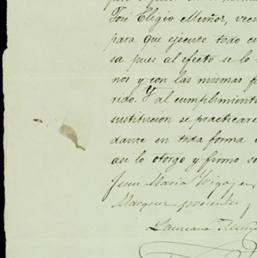 José Eligio Muñoz, vecin
para que ejecute todo cu
sa pues al efecto se lo
nos y con las mismas f
rido. Y al cumplimiento
sustitucion se practicare
dance en toda forma
asi lo otorgo y firmo s
Jesus Maria
Marquez presentes y
Laureano Muñoz